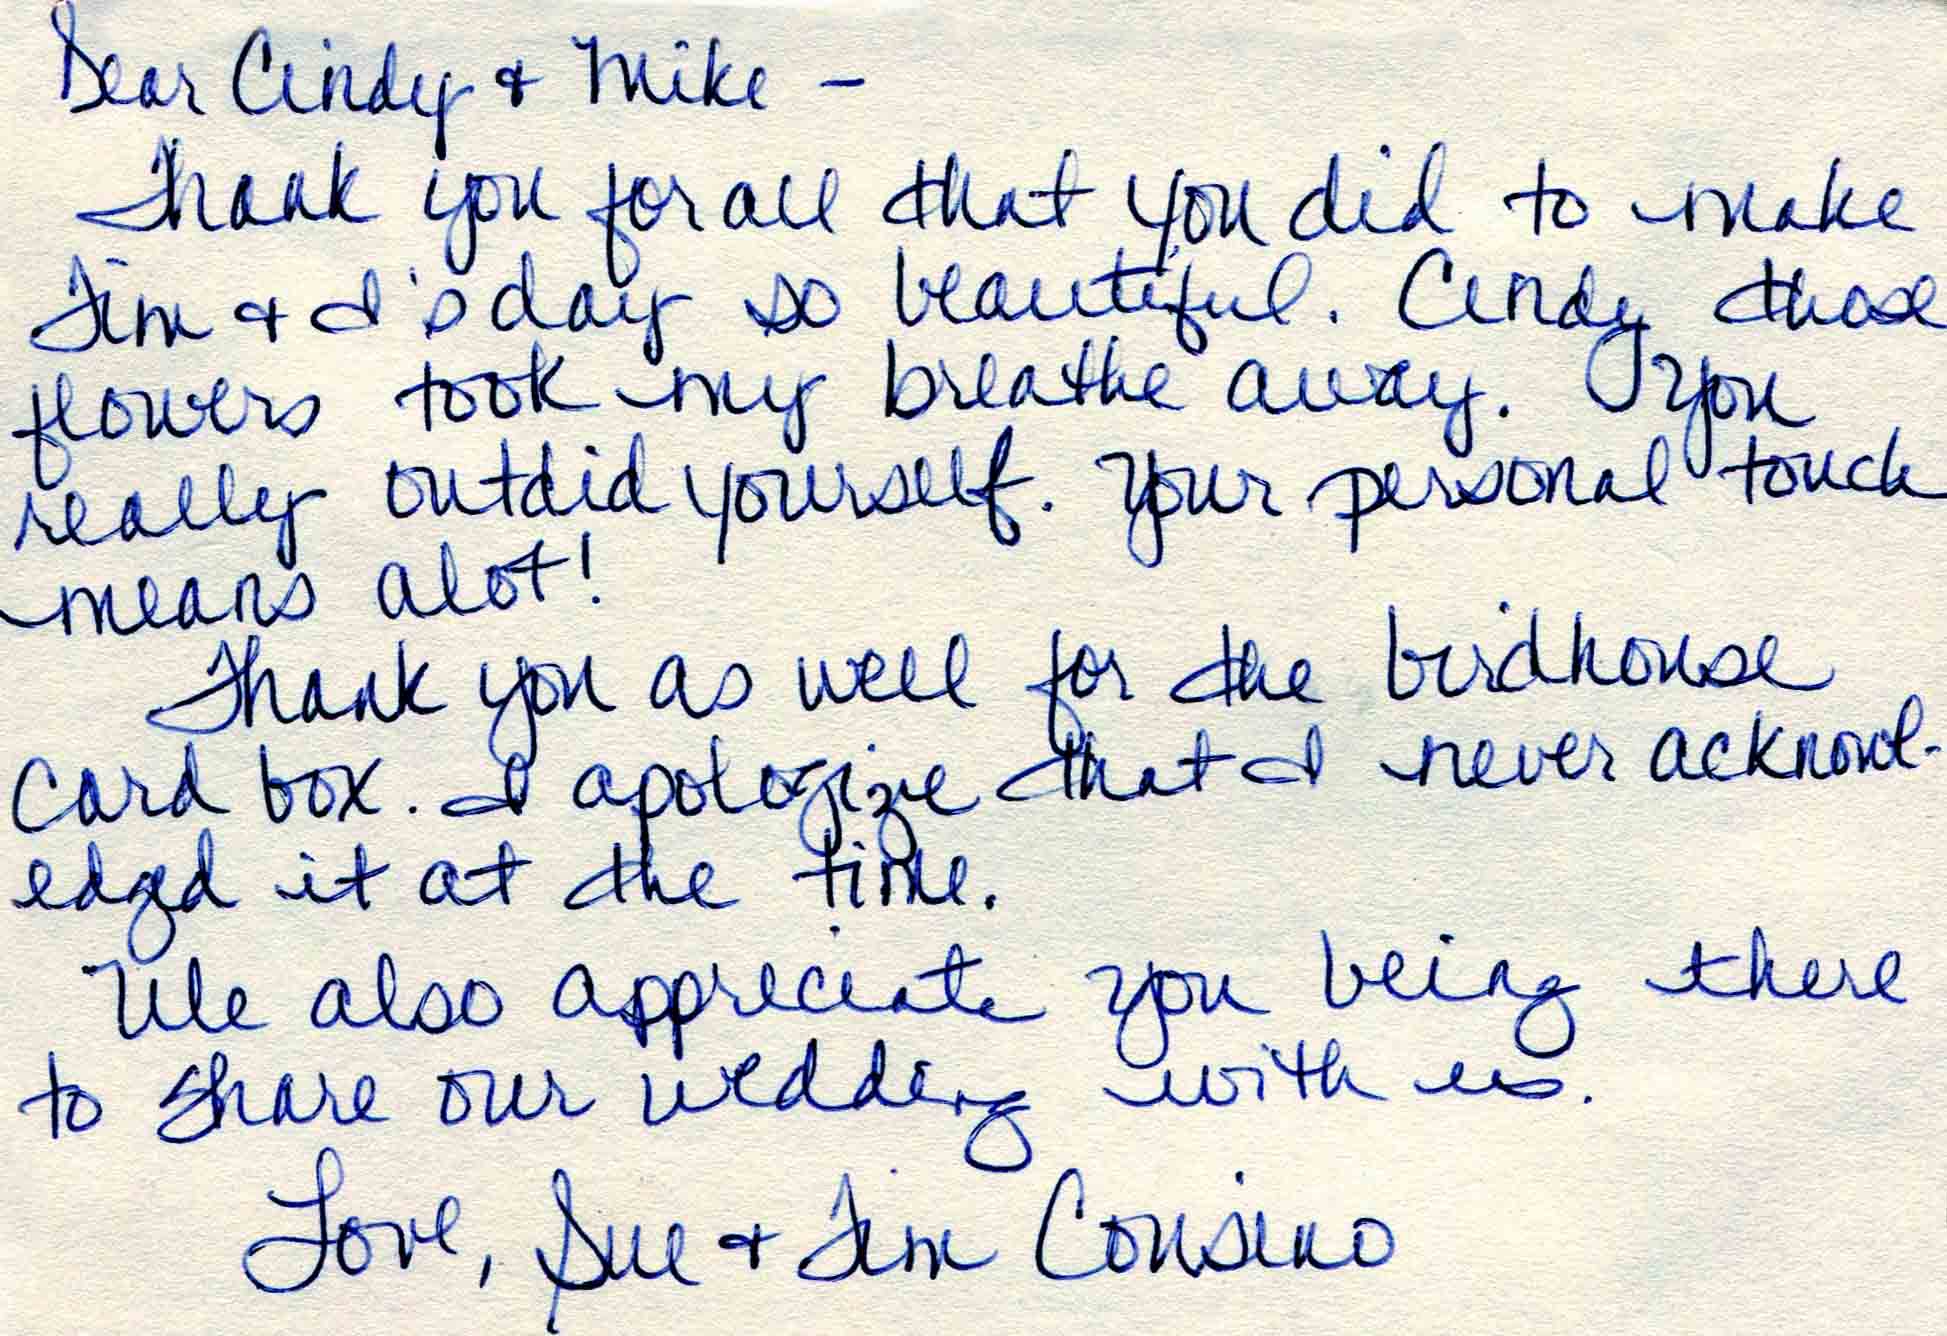 Dear Cindy & Mike –
Thank you for all that you did to make
Tim & I's day so beautiful. Cindy those
flowers took my breathe away. You
really outdid yourself. Your personal touch
means alot!
Thank you as well for the birdhouse
card box. I apologize that I never acknowl-
edged it at the time.
We also appreciate you being there
to share our wedding with us.
Love, Sue & Tim Cousino